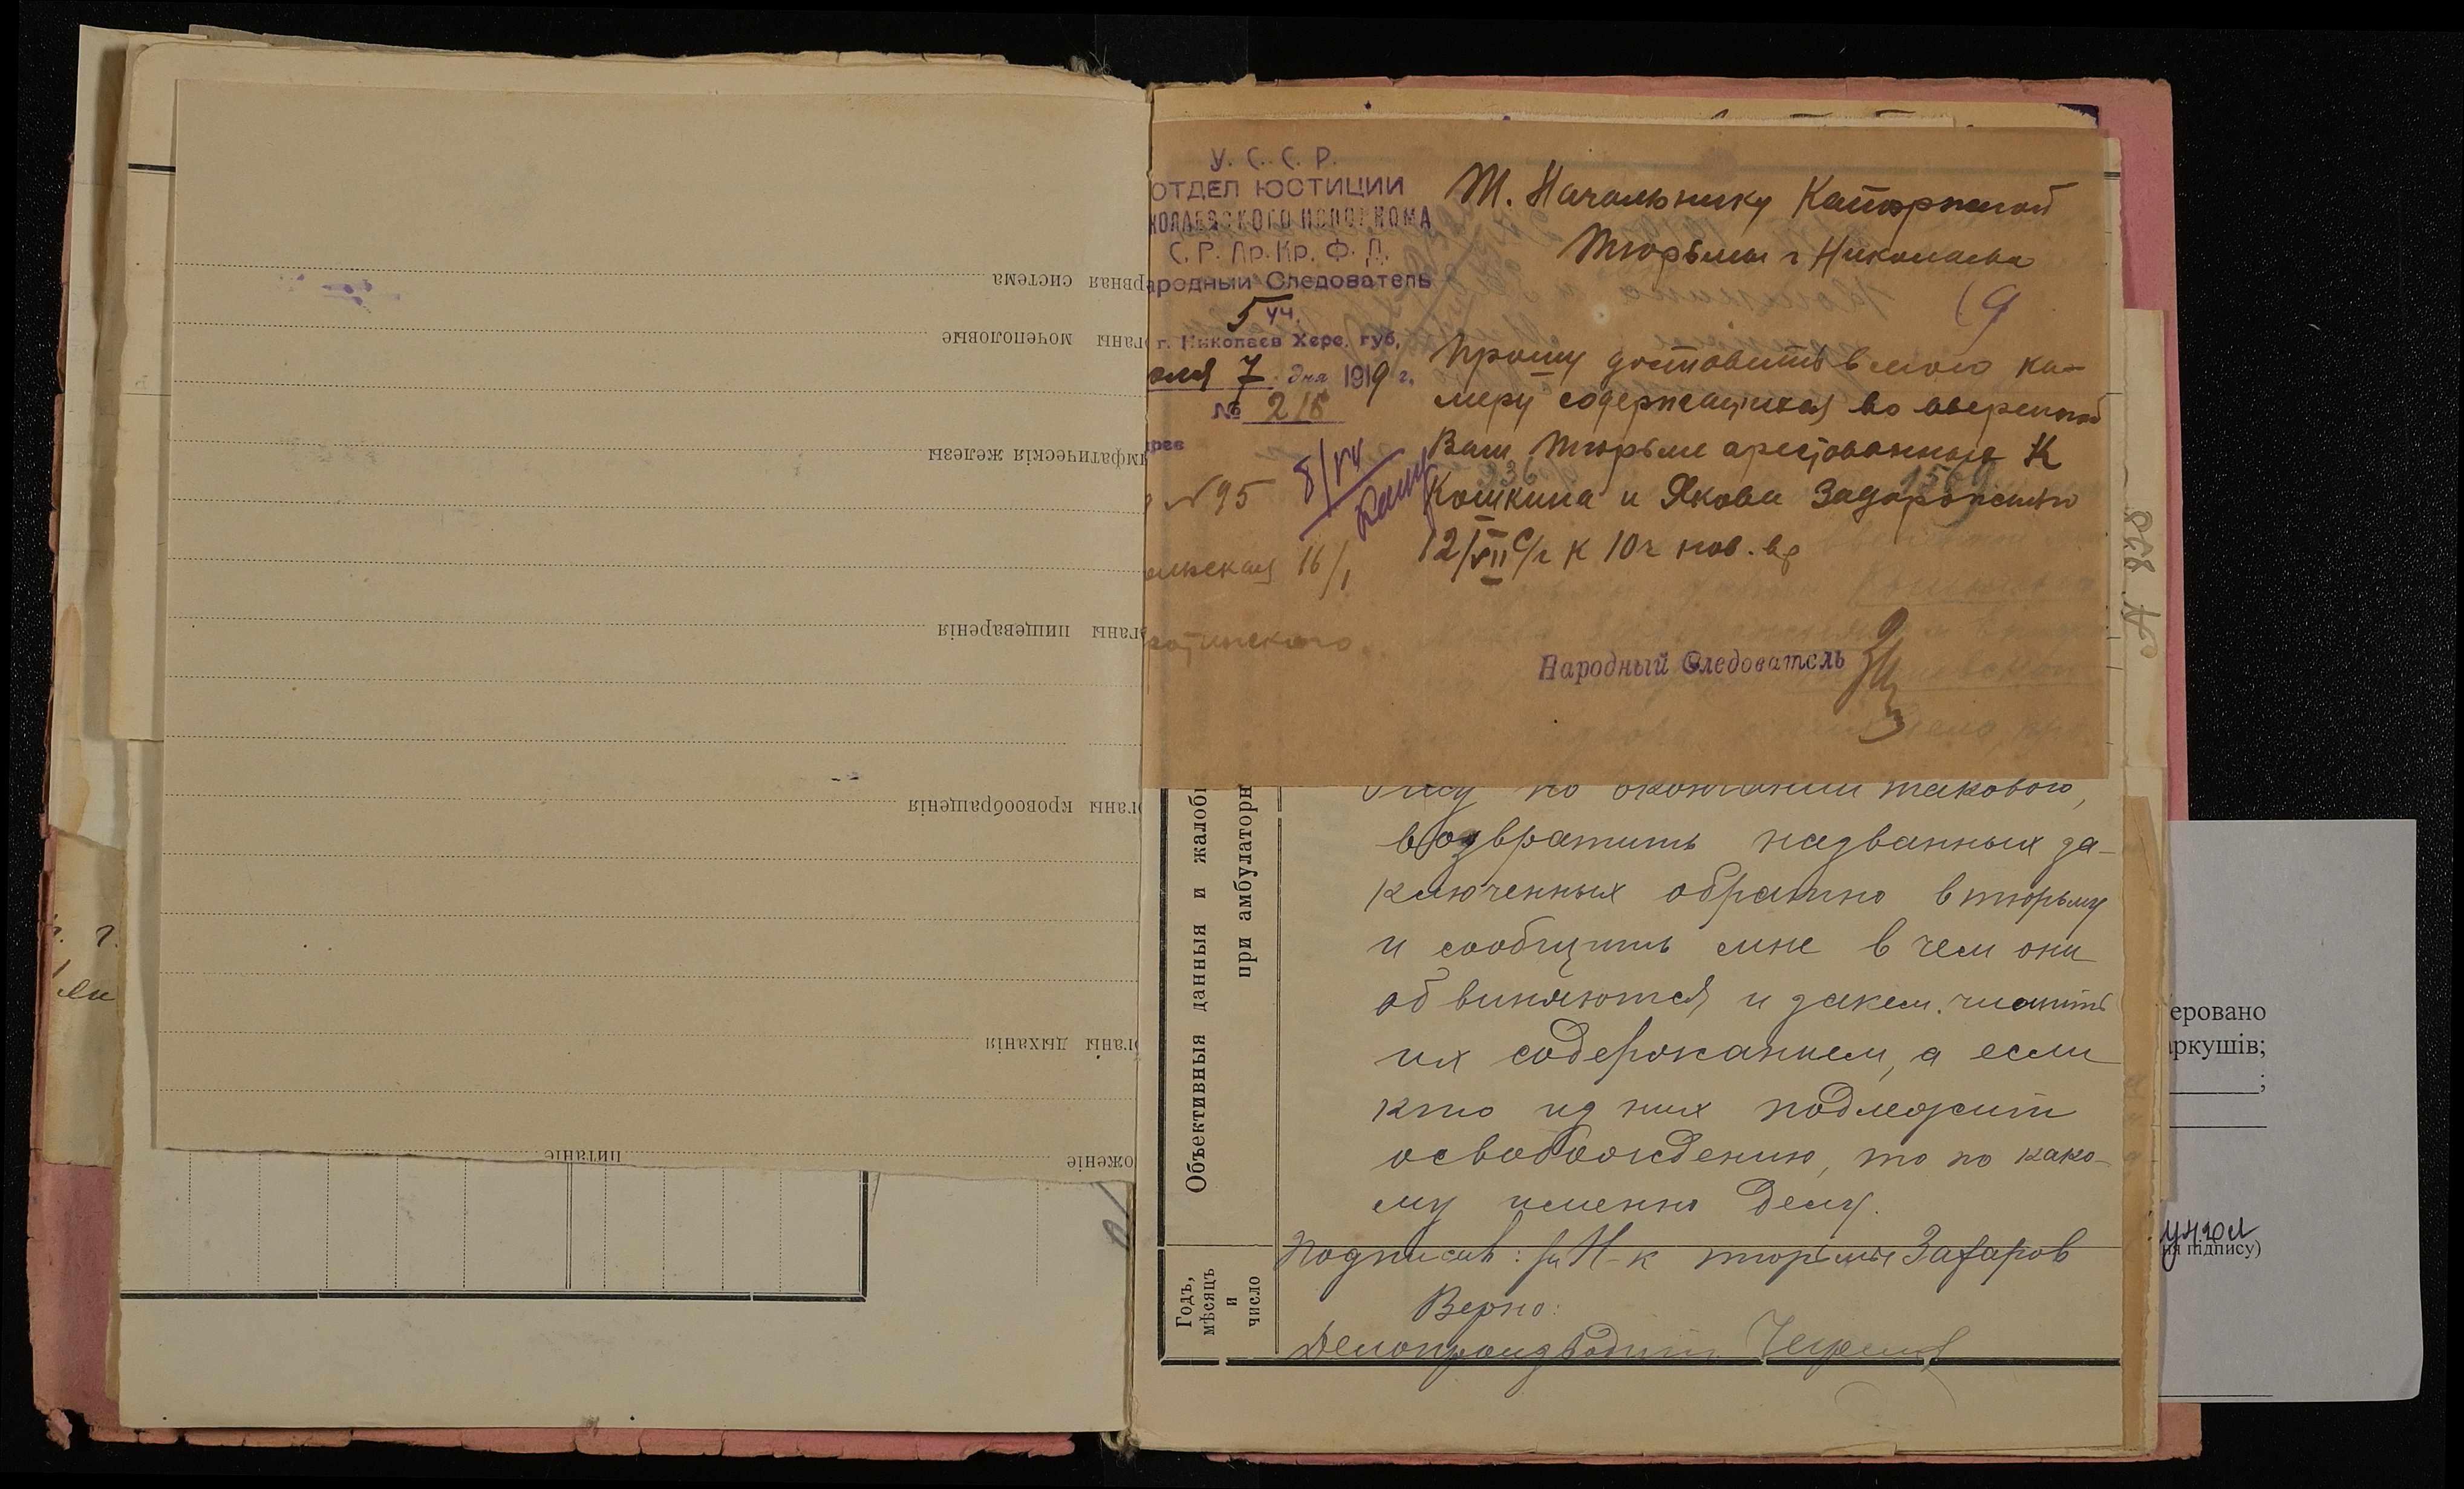 рвная система
ганы мочеполовые
имфатическія железы
ганы пищеваренія
ганы кровообращенія
ганы дыханія
оженіе питаніе
У. С. С. Р.
ОТДЕЛ ЮСТИЦИИ
КОЛАЕВСКОГО ИСПОЛКОМА
С. Р. Кр. Ф. Д.
ародный Следователь
5 уч.
г. Николаев Херс. губ.
юля 7 дня 1919 г.
№ 216
№ 95
16/1
Т. Начальнику Каторжной
Тюрьмы г Николаева
Прошу доставить в мою ка-
меру содержащихся во вверенной
Вам Тюрьме арестованные К
Кошкина и Якова
12/VII с/г к 10 ч нов. вр
Народный Следователь
по окончании такового,
возвратить названных за-
ключенных обратно в тюрьму
и сообщить мне в чем они
обвиняются и за кем числить
их содержанием, а если
кто из них подлежит
освобождению, то по како-
му именно делу.
Подписал: Н-к тюрьмы Захаров
Верно:
Делопроизводит.
Объективныя данныя и жалобы
при амбулаторн
Годъ,
мѣсяцъ
и
число
№ 858
еровано
аркушів;
;
ня підпису)